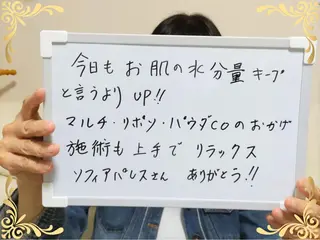 今日もお肌の水分量キープ
と言うより UP!!
マルチ・リポソ・パウダcoのおかげ
施術も上手で リラックス
ソフィアパレスさん ありがとう!!